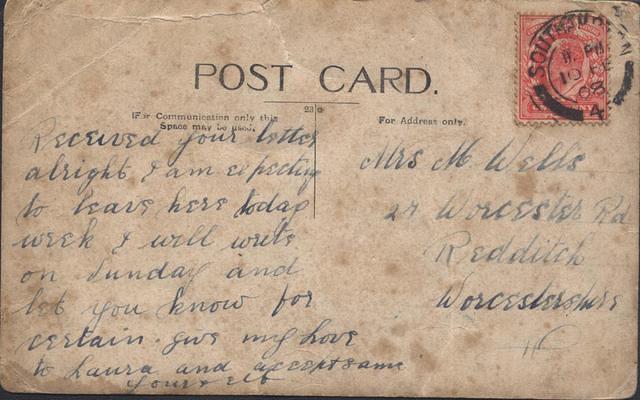 POST CARD.
23
(For Communication only this
Space may be used.
For Address only.
SOUTHAMPTON
10 FE
08
4
Received your letter
alright I am expecting
to leave here today
week I will write
on Sunday and
let you know for
certain. give my love
to Laura and accept same
yourself
Mrs M. Wells
Worcester Rd
Redditch
Worcestershire